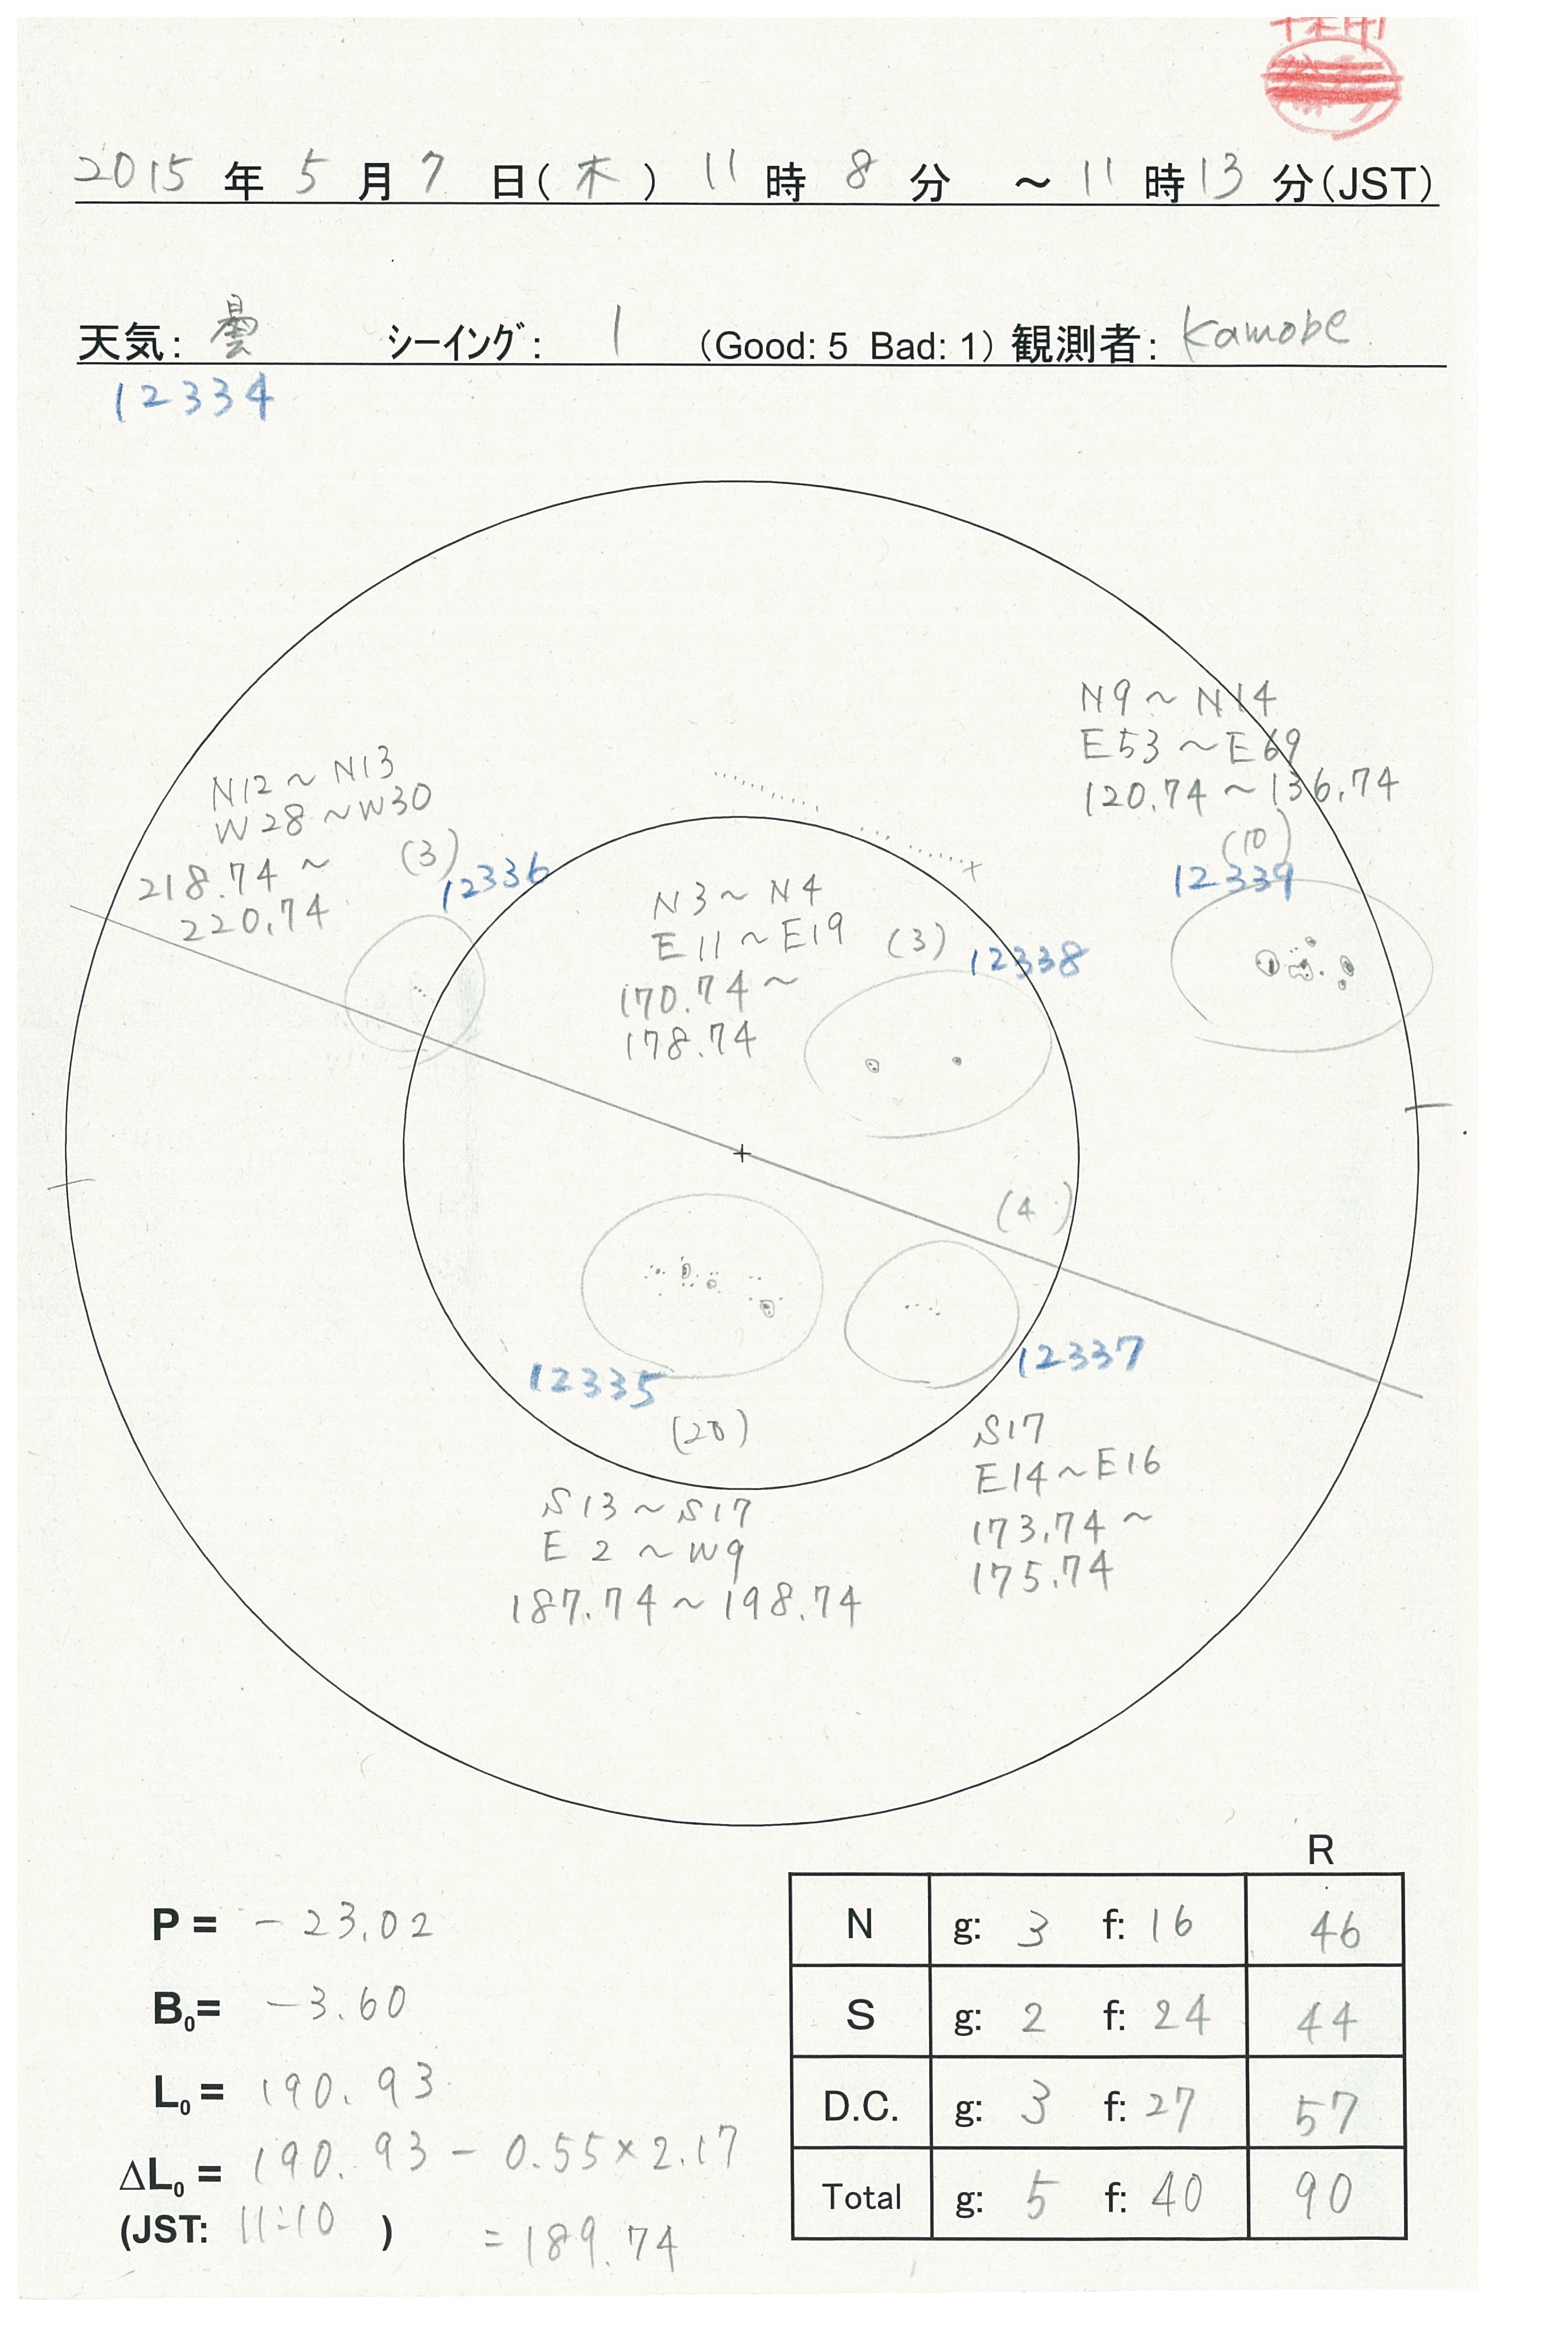 2015 年 5 月 7 日(木) 11 時 8 分 ～ 11 時 13 分(JST)
天気: 曇 シーイング: 1 (Good: 5 Bad: 1) 観測者: Kamobe
12334
N9～N14
E53～E69
120.74～136.74
(10)
12339
N12～N13
W28～W30
218.74～
220.74
(3)
12336
N3～N4
E11～E19
170.74～
178.74
(3)
12338
(4)
12337
S17
E14～E16
173.74～
175.74
12335
(20)
S13～S17
E2～W9
187.74～198.74
P = -23.02
B0= -3.60
L0= 190.93
ΔL0= 190.93 - 0.55×2.17
(JST: 11:10) = 189.74
R
N g: 3 f: 16 46
S g: 2 f: 24 44
D.C. g: 3 f: 27 57
Total g: 5 f: 40 90